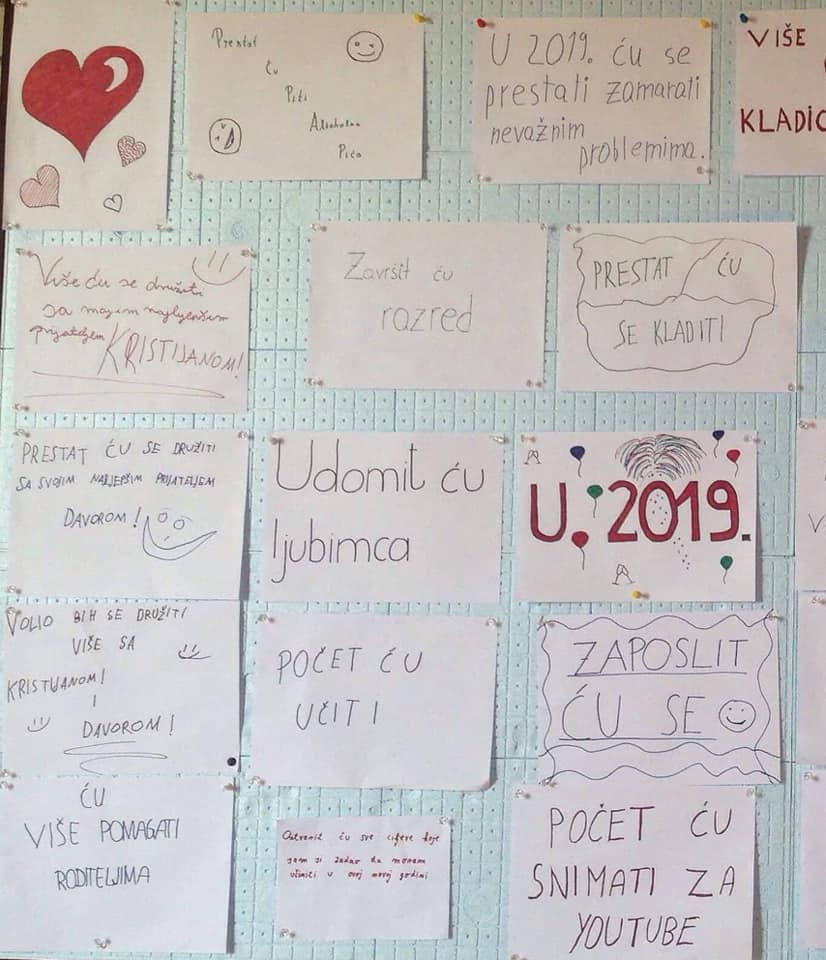 Prestat
Ću
Piti
Alkoholna
Pića
U 2019. ću se
prestati zamarati
nevažnim
problemima.
VIŠE
Više ću se družiti
sa mojim najljepšim
prijateljem KRISTIJANOM!
Završit ću
razred
PRESTAT ĆU
SE KLADITI
PRESTAT ĆU SE DRUŽITI
SA SVOJIM NAJLJEPŠIM PRIJATELJEM
DAVOROM!
Udomit ću
ljubimca
U. 2019.
VOLIO BIH SE DRUŽITI
VIŠE SA
KRISTIJANOM!
I
DAVOROM!
POČET ĆU
UČITI
ZAPOSLIT
ĆU SE
ĆU
VIŠE POMAGATI
RODITELJIMA
Ostvarit ću sve ciljeve koje
sam si zadao da moram
učiniti u ovoj novoj godini
POČET ĆU
SNIMATI ZA
YOUTUBE